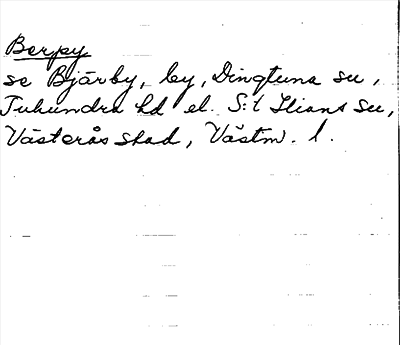 Berpy
se Bjärby, by, Dingtuna sn,
Tuhundra hd el. S:t Ilians sn,
Västerås stad, Västm. l.